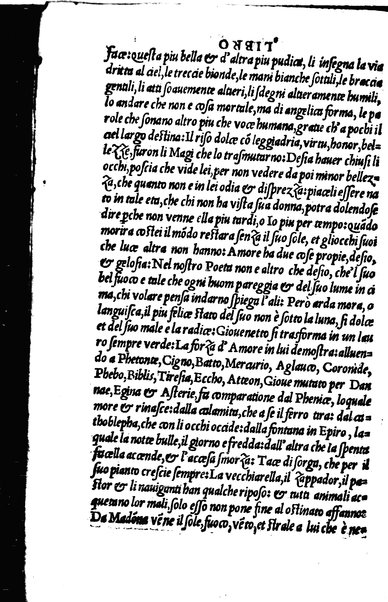 LIBRO
face: questa piu bella & d'altra piu pudica, li insegna la via
dritta al ciel, le treccie bionde, le mani bianche sottili, le braccia
gentili, li atti soauemente altieri, li sdegni alteramente humili,
lo andare che non e cosa mortale, ma di angelica forma, le pa
role che sonano altro piu che voce humana, gratie ch'a pochi il
ciel largo destina: Il riso dolce cō leggiadria, virtu, honor, bel=
lezze, furon li Magi che lo trasmutarno: Desia hauer chiusi li
occhi, poscia che vide lei, per non vedere da poi minor bellez=
za, che quanto non e in lei odia & disprezza: piaceli essere na
to in tale eta, che chi non ha vista sua donna, potra dolendose
dire ꝑche non venne ella piu tardi, o Io piu per tempo: quādo
morira costei il mōdo restara senza il suo sole, et gliocchi suoi
che luce altra non hanno: Amore ha due cose propie, desio,
& gelosia: Nel nostro Poeta non e altro che desio, che'l suo
bel fuoco e tale che ogni huom pareggia & del suo lume in ci
ma, chi volare pensa indarno spiega l'ali: Però arda mora, o
languisca, il piu felice stato del suo non è sotto la luna, si dolce
et del suo male e la radice: Giouenetto si trasforma in un lau
ro sempre verde: La forza d'Amore in lui demostra: alluen=
do a Phetonte, Cigno, Batto, Mercurio, Aglauco, Coronide,
Phebo, Biblis, Tiresia, Eccho, Atteon, Gioue mutato per Dan
nae, Egina & Asterie, fa comparatione dal Pheniæ, loquale
more & rinasce: dalla calamita, che a se il ferro tira: dal ca=
thoblepha, che con li occhi occide: dalla fontana in Epiro, la=
quale la notte bulle, il giorno e fredda: dall'altra che la spenta
facella accende, & l'accesa smorza: Tace di sorga, che per il
suo pianto crescie sempre: La vecchiarella, il zappador, il pa=
stor & li nauiganti han qualche riposo: & tutti animali ac=
quetano lor mali, solo essi non pone fine al ostinato affanno:
Da Madōna vēne il sole, fuoco, vēto, et strale a lui che è ne=